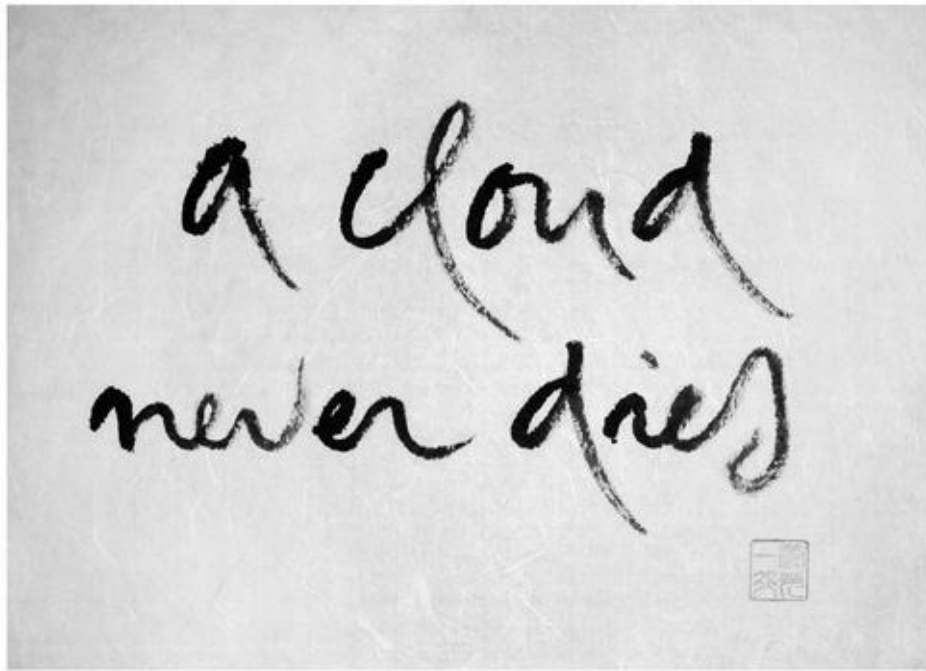 a cloud
never dies